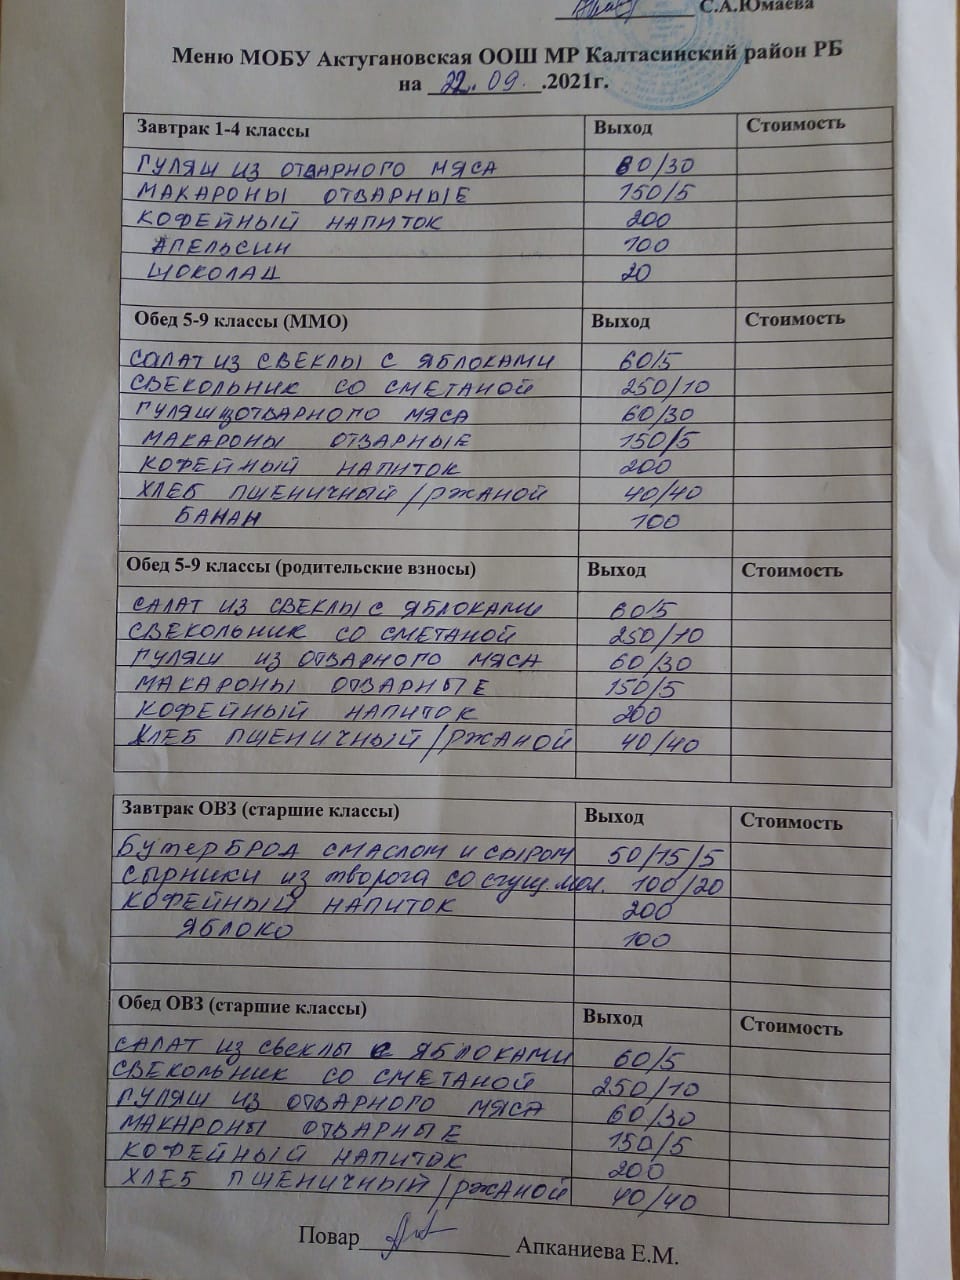 С.А.Юмаева
Меню МОБУ Актугановская ООШ МР Калтасинский район РБ
на 22.09.2021г.
Завтрак 1-4 классы Выход Стоимость
ГУЛЯШ ИЗ ОТВАРНОГО МЯСА 60/30
МАКАРОНЫ ОТВАРНЫЕ 150/5
КОФЕЙНЫЙ НАПИТОК 200
АПЕЛЬСИН 100
ШОКОЛАД 20
Обед 5-9 классы (ММО) Выход Стоимость
САЛАТ ИЗ СВЕКЛЫ С ЯБЛОКАМИ 60/5
СВЕКОЛЬНИК СО СМЕТАНОЙ 250/10
ГУЛЯШ ИЗ ОТВАРНОГО МЯСА 60/30
МАКАРОНЫ ОТВАРНЫЕ 150/5
КОФЕЙНЫЙ НАПИТОК 200
ХЛЕБ ПШЕНИЧНЫЙ/РЖАНОЙ 40/40
БАНАН 100
Обед 5-9 классы (родительские взносы) Выход Стоимость
САЛАТ ИЗ СВЕКЛЫ С ЯБЛОКАМИ 60/5
СВЕКОЛЬНИК СО СМЕТАНОЙ 250/10
ГУЛЯШ ИЗ ОТВАРНОГО МЯСА 60/30
МАКАРОНЫ ОТВАРНЫЕ 150/5
КОФЕЙНЫЙ НАПИТОК 200
ХЛЕБ ПШЕНИЧНЫЙ/РЖАНОЙ 40/40
Завтрак ОВЗ (старшие классы) Выход Стоимость
БУТЕРБРОД С МАСЛОМ И СЫРОМ 50/15/5
СЫРНИКИ ИЗ творога со сгущ. мол. 100/20
КОФЕЙНЫЙ НАПИТОК 200
ЯБЛОКО 100
Обед ОВЗ (старшие классы) Выход Стоимость
САЛАТ ИЗ СВЕКЛЫ С ЯБЛОКАМИ 60/5
СВЕКОЛЬНИК СО СМЕТАНОЙ 250/10
ГУЛЯШ ИЗ ОТВАРНОГО МЯСА 60/30
МАКАРОНЫ ОТВАРНЫЕ 150/5
КОФЕЙНЫЙ НАПИТОК 200
ХЛЕБ ПШЕНИЧНЫЙ/РЖАНОЙ 40/40
Повар Апканиева Е.М.